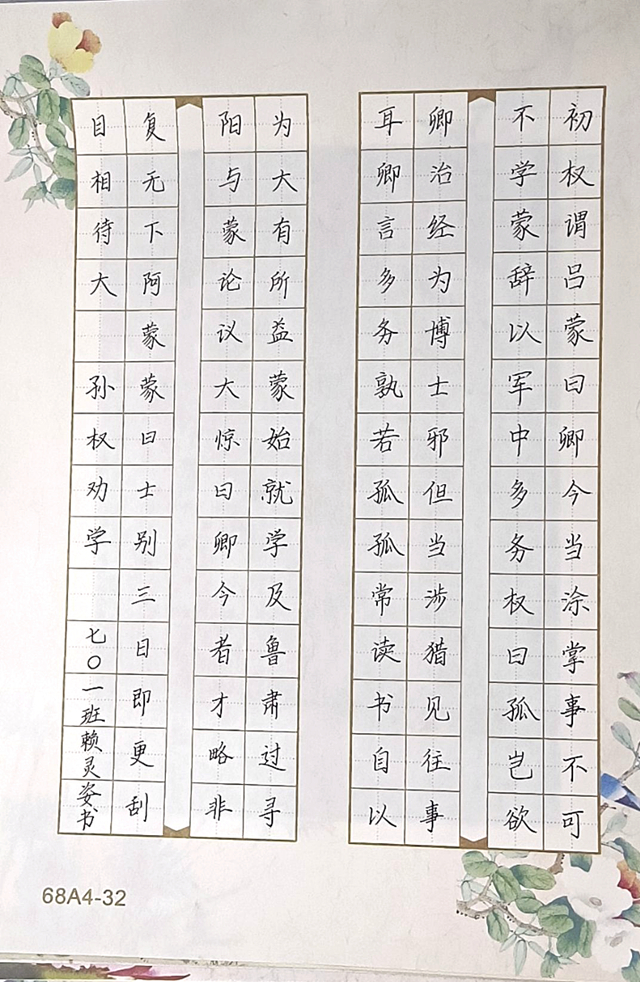 初权谓吕蒙曰卿今当涂掌事不可
不学蒙辞以军中多务权曰孤岂欲
卿治经为博士邪但当涉猎见往事
耳卿言多务孰若孤孤常读书自以
为大有所益蒙始就学及鲁肃过寻
阳与蒙论议大惊曰卿今者才略非
复无下阿蒙蒙曰士别三日即更刮
目相待大 孙权劝学 七〇一班赖灵姿书
68A4-32